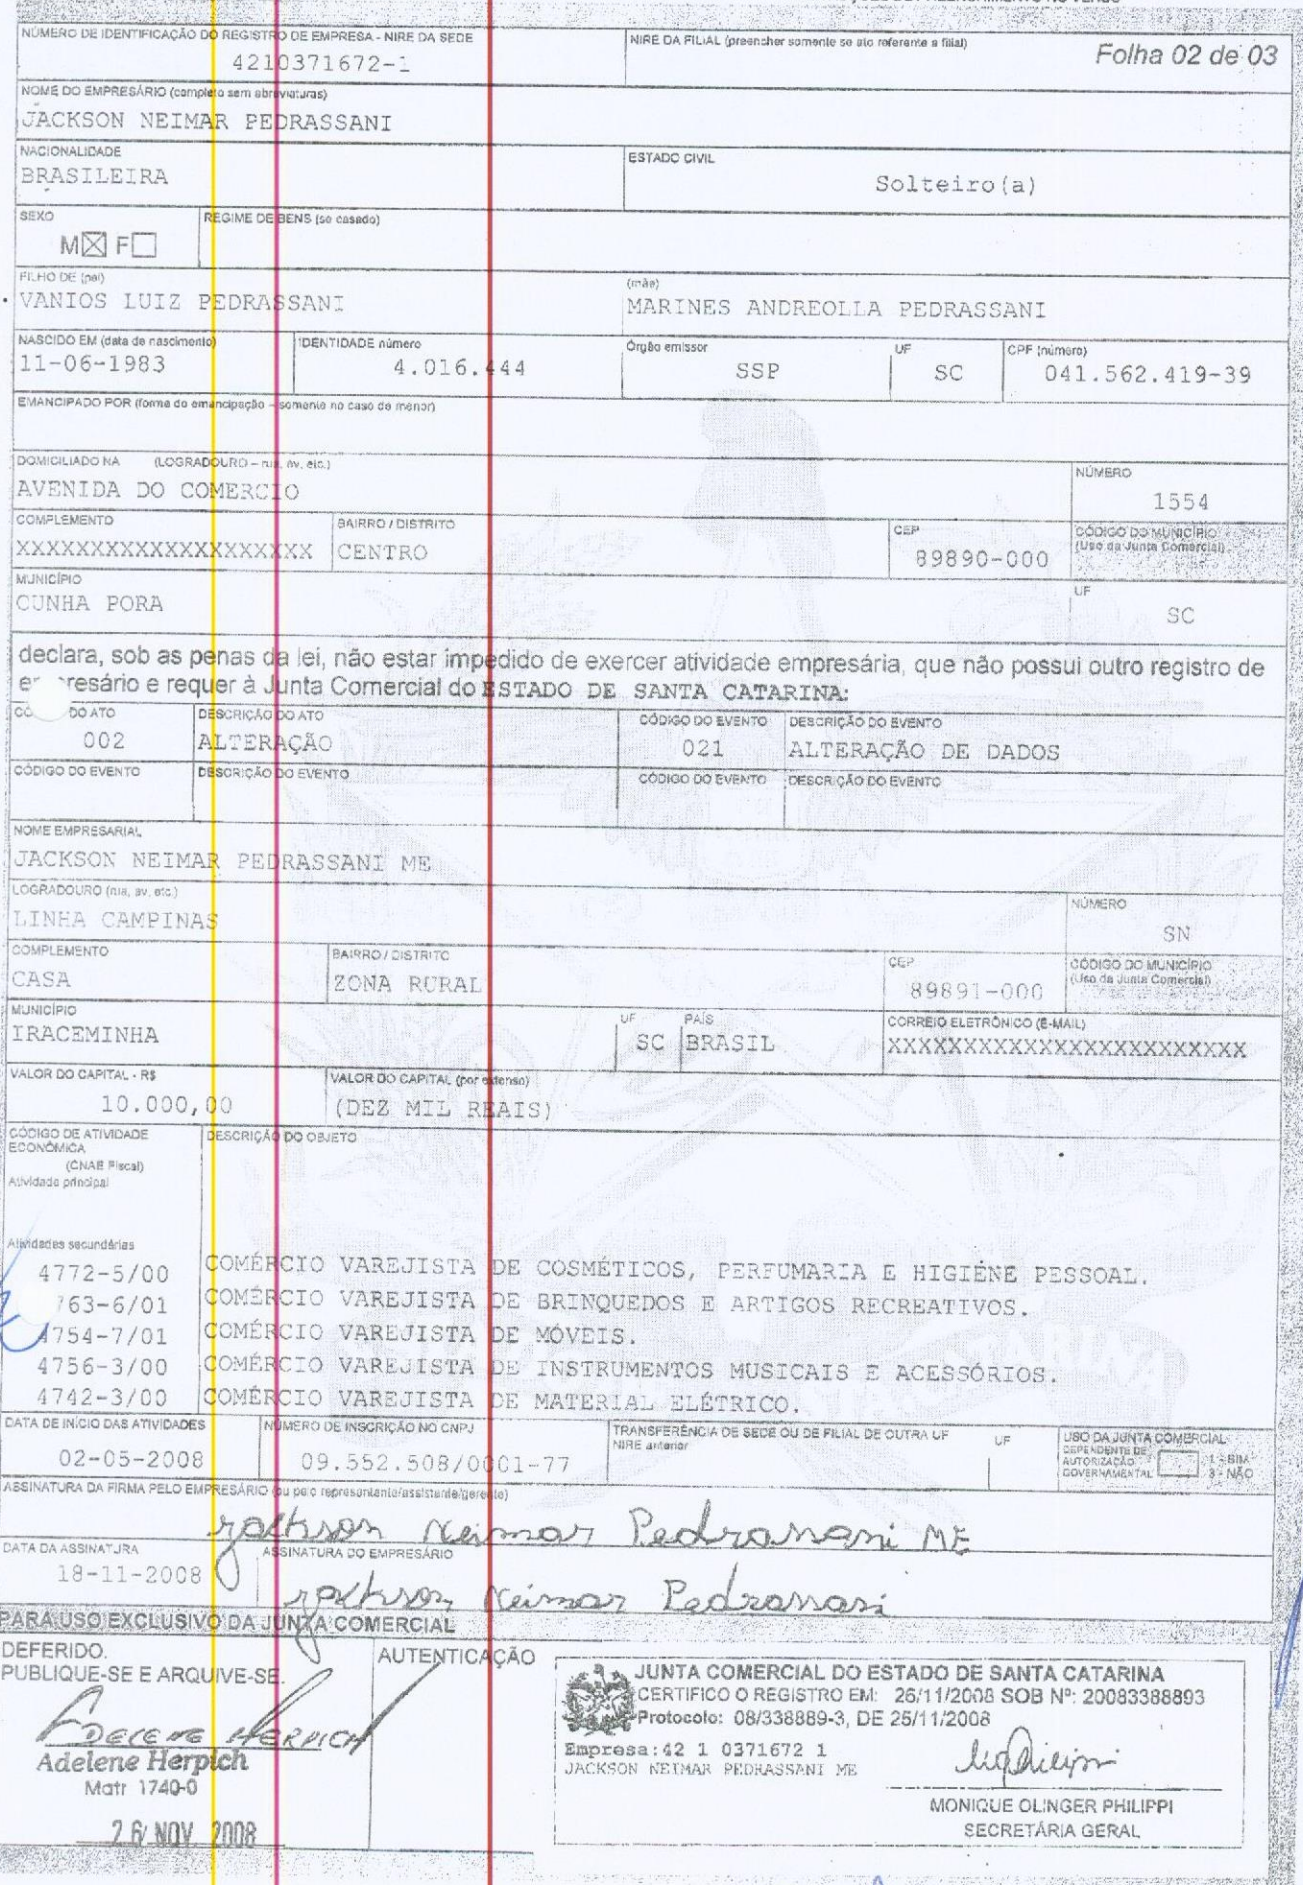 NÚMERO DE IDENTIFICAÇÃO DO REGISTRO DE EMPRESA - NIRE DA SEDE
4210371672-1
NIRE DA FILIAL (preencher somente se ato referente a filial)
Folha 02 de 03
NOME DO EMPRESÁRIO (completo sem abreviaturas)
JACKSON NEIMAR PEDRASSANI
NACIONALIDADE
BRASILEIRA
ESTADO CIVIL
Solteiro(a)
SEXO
M☒ F☐
REGIME DE BENS (se casado)
FILHO DE (pai)
VANIOS LUIZ PEDRASSANI
(mãe)
MARINES ANDREOLLA PEDRASSANI
NASCIDO EM (data de nascimento)
11-06-1983
IDENTIDADE número
4.016.444
Órgão emissor
SSP
UF
SC
CPF (número)
041.562.419-39
EMANCIPADO POR (forma de emancipação – somente no caso de menor)
DOMICILIADO NA (LOGRADOURO – rua, av, etc.)
AVENIDA DO COMERCIO
NÚMERO
1554
COMPLEMENTO
XXXXXXXXXXXXXXXXXXXX
BAIRRO / DISTRITO
CENTRO
CEP
89890-000
CÓDIGO DO MUNICÍPIO
(Uso da Junta Comercial)
MUNICÍPIO
CUNHA PORA
UF
SC
declara, sob as penas da lei, não estar impedido de exercer atividade empresária, que não possui outro registro de
empresário e requer à Junta Comercial do ESTADO DE SANTA CATARINA:
DO ATO
002
DESCRIÇÃO DO ATO
ALTERAÇÃO
CÓDIGO DO EVENTO
021
DESCRIÇÃO DO EVENTO
ALTERAÇÃO DE DADOS
CÓDIGO DO EVENTO
DESCRIÇÃO DO EVENTO
CÓDIGO DO EVENTO
DESCRIÇÃO DO EVENTO
NOME EMPRESARIAL
JACKSON NEIMAR PEDRASSANI ME
LOGRADOURO (rua, av, etc.)
LINHA CAMPINAS
NÚMERO
SN
COMPLEMENTO
CASA
BAIRRO / DISTRITO
ZONA RURAL
CEP
89891-000
CÓDIGO DO MUNICÍPIO
(Uso da Junta Comercial)
MUNICÍPIO
IRACEMINHA
UF
SC
PAÍS
BRASIL
CORREIO ELETRÔNICO (E-MAIL)
XXXXXXXXXXXXXXXXXXXXXXXX
VALOR DO CAPITAL - R$
10.000,00
VALOR DO CAPITAL (por extenso)
(DEZ MIL REAIS)
CÓDIGO DE ATIVIDADE
ECONÔMICA
(CNAE Fiscal)
Atividade principal
DESCRIÇÃO DO OBJETO
Atividades secundárias
4772-5/00 COMÉRCIO VAREJISTA DE COSMÉTICOS, PERFUMARIA E HIGIÊNE PESSOAL.
763-6/01 COMÉRCIO VAREJISTA DE BRINQUEDOS E ARTIGOS RECREATIVOS.
4754-7/01 COMÉRCIO VAREJISTA DE MÓVEIS.
4756-3/00 COMÉRCIO VAREJISTA DE INSTRUMENTOS MUSICAIS E ACESSÓRIOS.
4742-3/00 COMÉRCIO VAREJISTA DE MATERIAL ELÉTRICO.
DATA DE INÍCIO DAS ATIVIDADES
02-05-2008
NÚMERO DE INSCRIÇÃO NO CNPJ
09.552.508/0001-77
TRANSFERÊNCIA DE SEDE OU DE FILIAL DE OUTRA UF
NIRE anterior
UF
USO DA JUNTA COMERCIAL
DEPENDENTE DE
AUTORIZAÇÃO
GOVERNAMENTAL
1 - SIM
3 - NÃO
ASSINATURA DA FIRMA PELO EMPRESÁRIO (ou pelo representante/assistente/gerente)
Jackson Neimar Pedrassani ME
DATA DA ASSINATURA
18-11-2008
ASSINATURA DO EMPRESÁRIO
Jackson Neimar Pedrassani
PARA USO EXCLUSIVO DA JUNTA COMERCIAL
DEFERIDO.
PUBLIQUE-SE E ARQUIVE-SE.
ADELENE HERPICH
Adelene Herpich
Matr 1740-0
26 NOV 2008
AUTENTICAÇÃO
JUNTA COMERCIAL DO ESTADO DE SANTA CATARINA
CERTIFICO O REGISTRO EM: 26/11/2008 SOB Nº: 20083388893
Protocolo: 08/338889-3, DE 25/11/2008
Empresa:42 1 0371672 1
JACKSON NEIMAR PEDRASSANI ME
MONIQUE OLINGER PHILIPPI
SECRETÁRIA GERAL